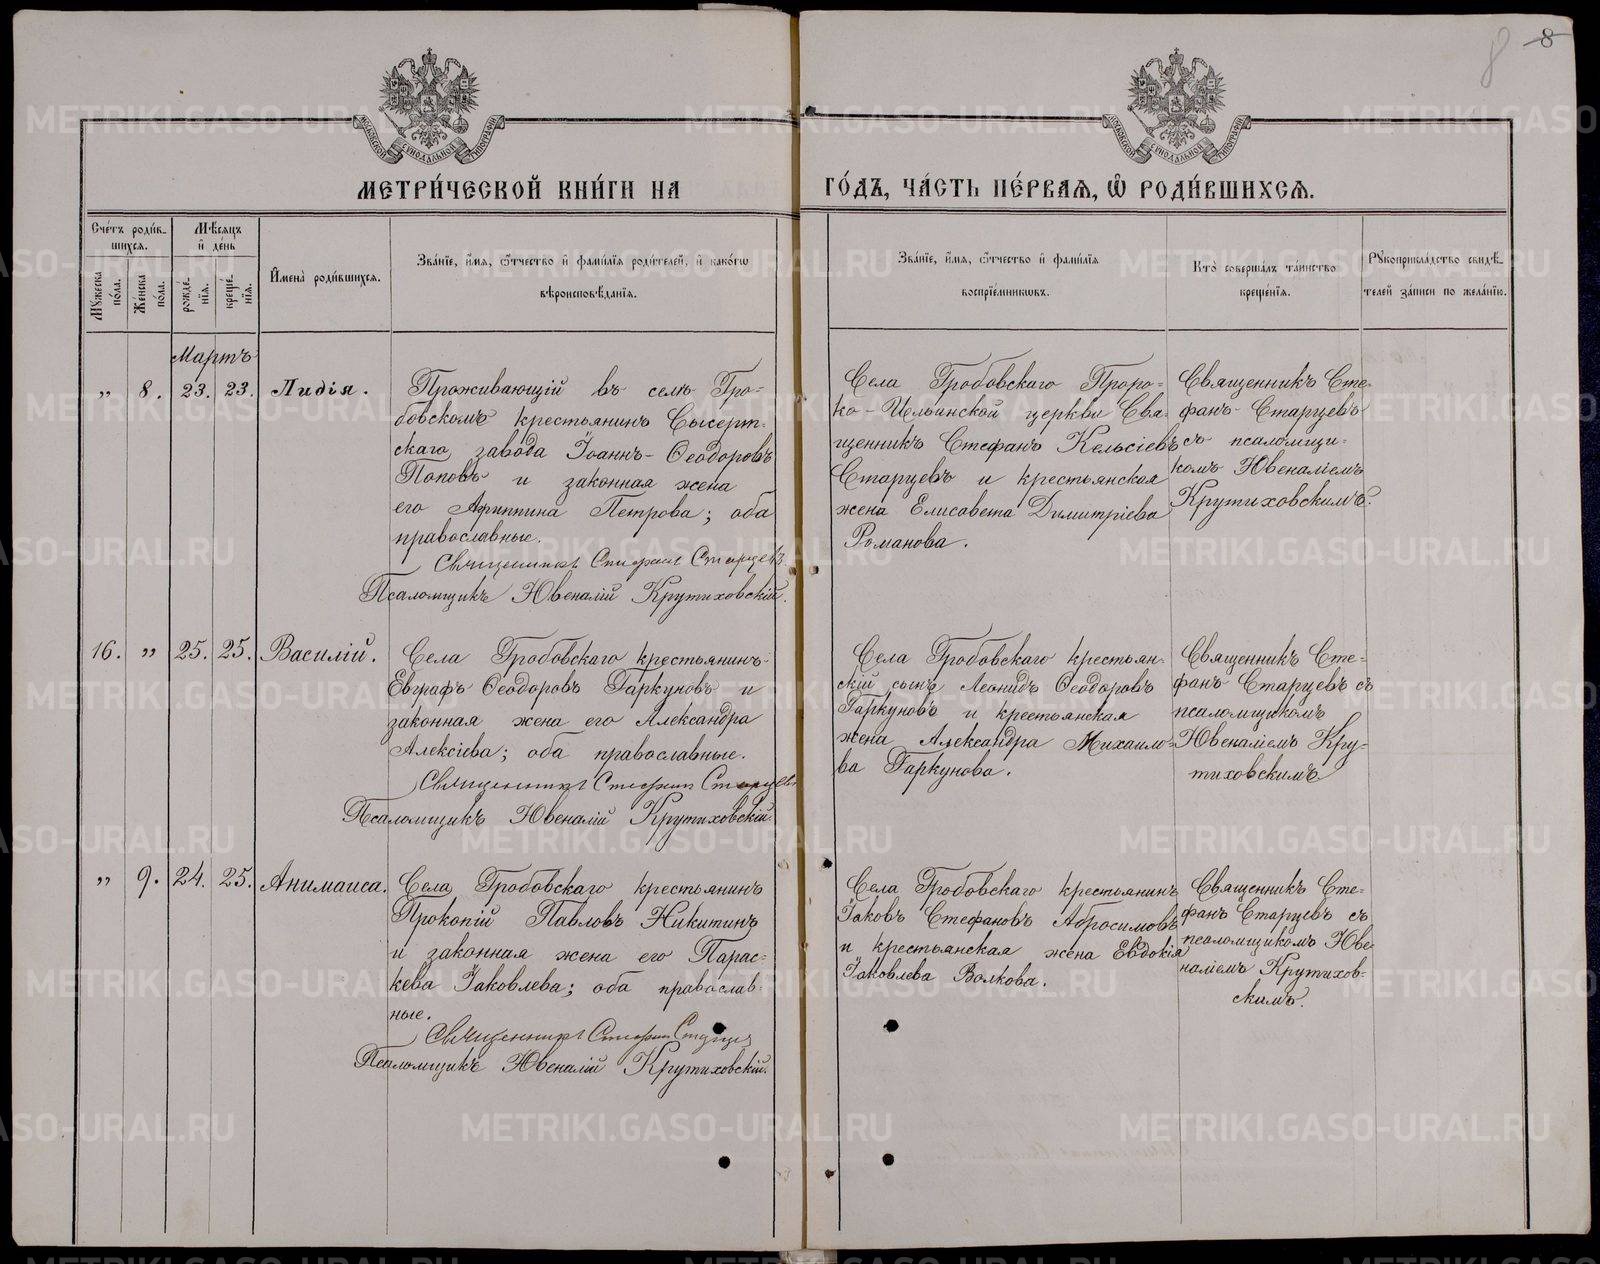 8 8
МОСКОВСКОЙ СѴНОДАЛЬНОЙ ТИПОГРАФІИ
МОСКОВСКОЙ СѴНОДАЛЬНОЙ ТИПОГРАФІИ
МЕТРИ́ЧЕСКОЙ КНИ́ГИ НА
ГО́ДЪ, ЧА́СТЬ ПЕ́РВАѦ, Ѽ РОДИ́ВШИХСѦ.
Сче́тъ роди́в-
шихсѧ.
Мꙋжеска по́ла.
Же́нска по́ла.
Мѣ́сѧцъ
и҆ де́нь
рожде́-нїѧ.
креще́-нїѧ.
И҆мена̀ роди́вшихсѧ.
Зва́нїе, и҆́мѧ, ѻ҆́тчество и҆ фами́лїѧ роди́телей, и҆ како́гѡ
вѣроисповѣ́данїѧ.
Зва́нїе, и҆́мѧ, ѻ҆́тчество и҆ фами́лїѧ
воспрїе́мникѡвъ.
Кто̀ соверша́лъ та́инство
креще́нїѧ.
Рꙋкоприкла́дство свидѣ́-
телей за́писи по жела́нїю.
Мартъ
„ 8. 23. 23. Лидія.
Проживающій въ селѣ Гро-
бовскомъ крестьянинъ Сысерт-
скаго завода Іоаннъ Ѳеодоровъ
Поповъ и законная жена
его Агриппина Петрова; оба
православные.
Священникъ Стефанъ Старцевъ
Псаломщикъ Ювеналій Крутиховскій.
Села Гробовскаго Проро-
ко-Ильинской церкви Свя-
щенникъ Стефанъ Кельсіевъ
Старцевъ и крестьянская
жена Елисавета Димитріева
Романова.
Священникъ Сте-
фанъ Старцевъ
съ псаломщи-
комъ Ювеналіемъ
Крутиховскимъ.
16. „ 25. 25. Василій.
Села Гробовскаго крестьянинъ
Евграфъ Ѳеодоровъ Гаркуновъ и
законная жена его Александра
Алексіева; оба православные.
Священникъ Стефанъ Старцевъ
Псаломщикъ Ювеналій Крутиховскій
Села Гробовскаго крестьян-
скій сынъ Леонидъ Ѳеодоровъ
Гаркуновъ и крестьянская
жена Александра Михаило-
ва Гаркунова.
Священникъ Сте-
фанъ Старцевъ съ
псаломщикомъ
Ювеналіемъ Кру-
тиховскимъ
„ 9. 24. 25. Анимаиса.
Села Гробовскаго крестьянинъ
Прокопій Павловъ Никитинъ
и законная жена его Парас-
кева Іаковлева; оба православ-
ные.
Священникъ Стефанъ Старцевъ
Псаломщикъ Ювеналій Крутиховскій.
Села Гробовскаго крестьянинъ
Іаковъ Стефановъ Абросимовъ
и крестьянская жена Евдокія
Іаковлева Волкова.
Священникъ Сте-
фанъ Старцевъ съ
псаломщикомъ Юве-
наліемъ Крутихов-
скимъ.
METRIKI.GASO-URAL.RU